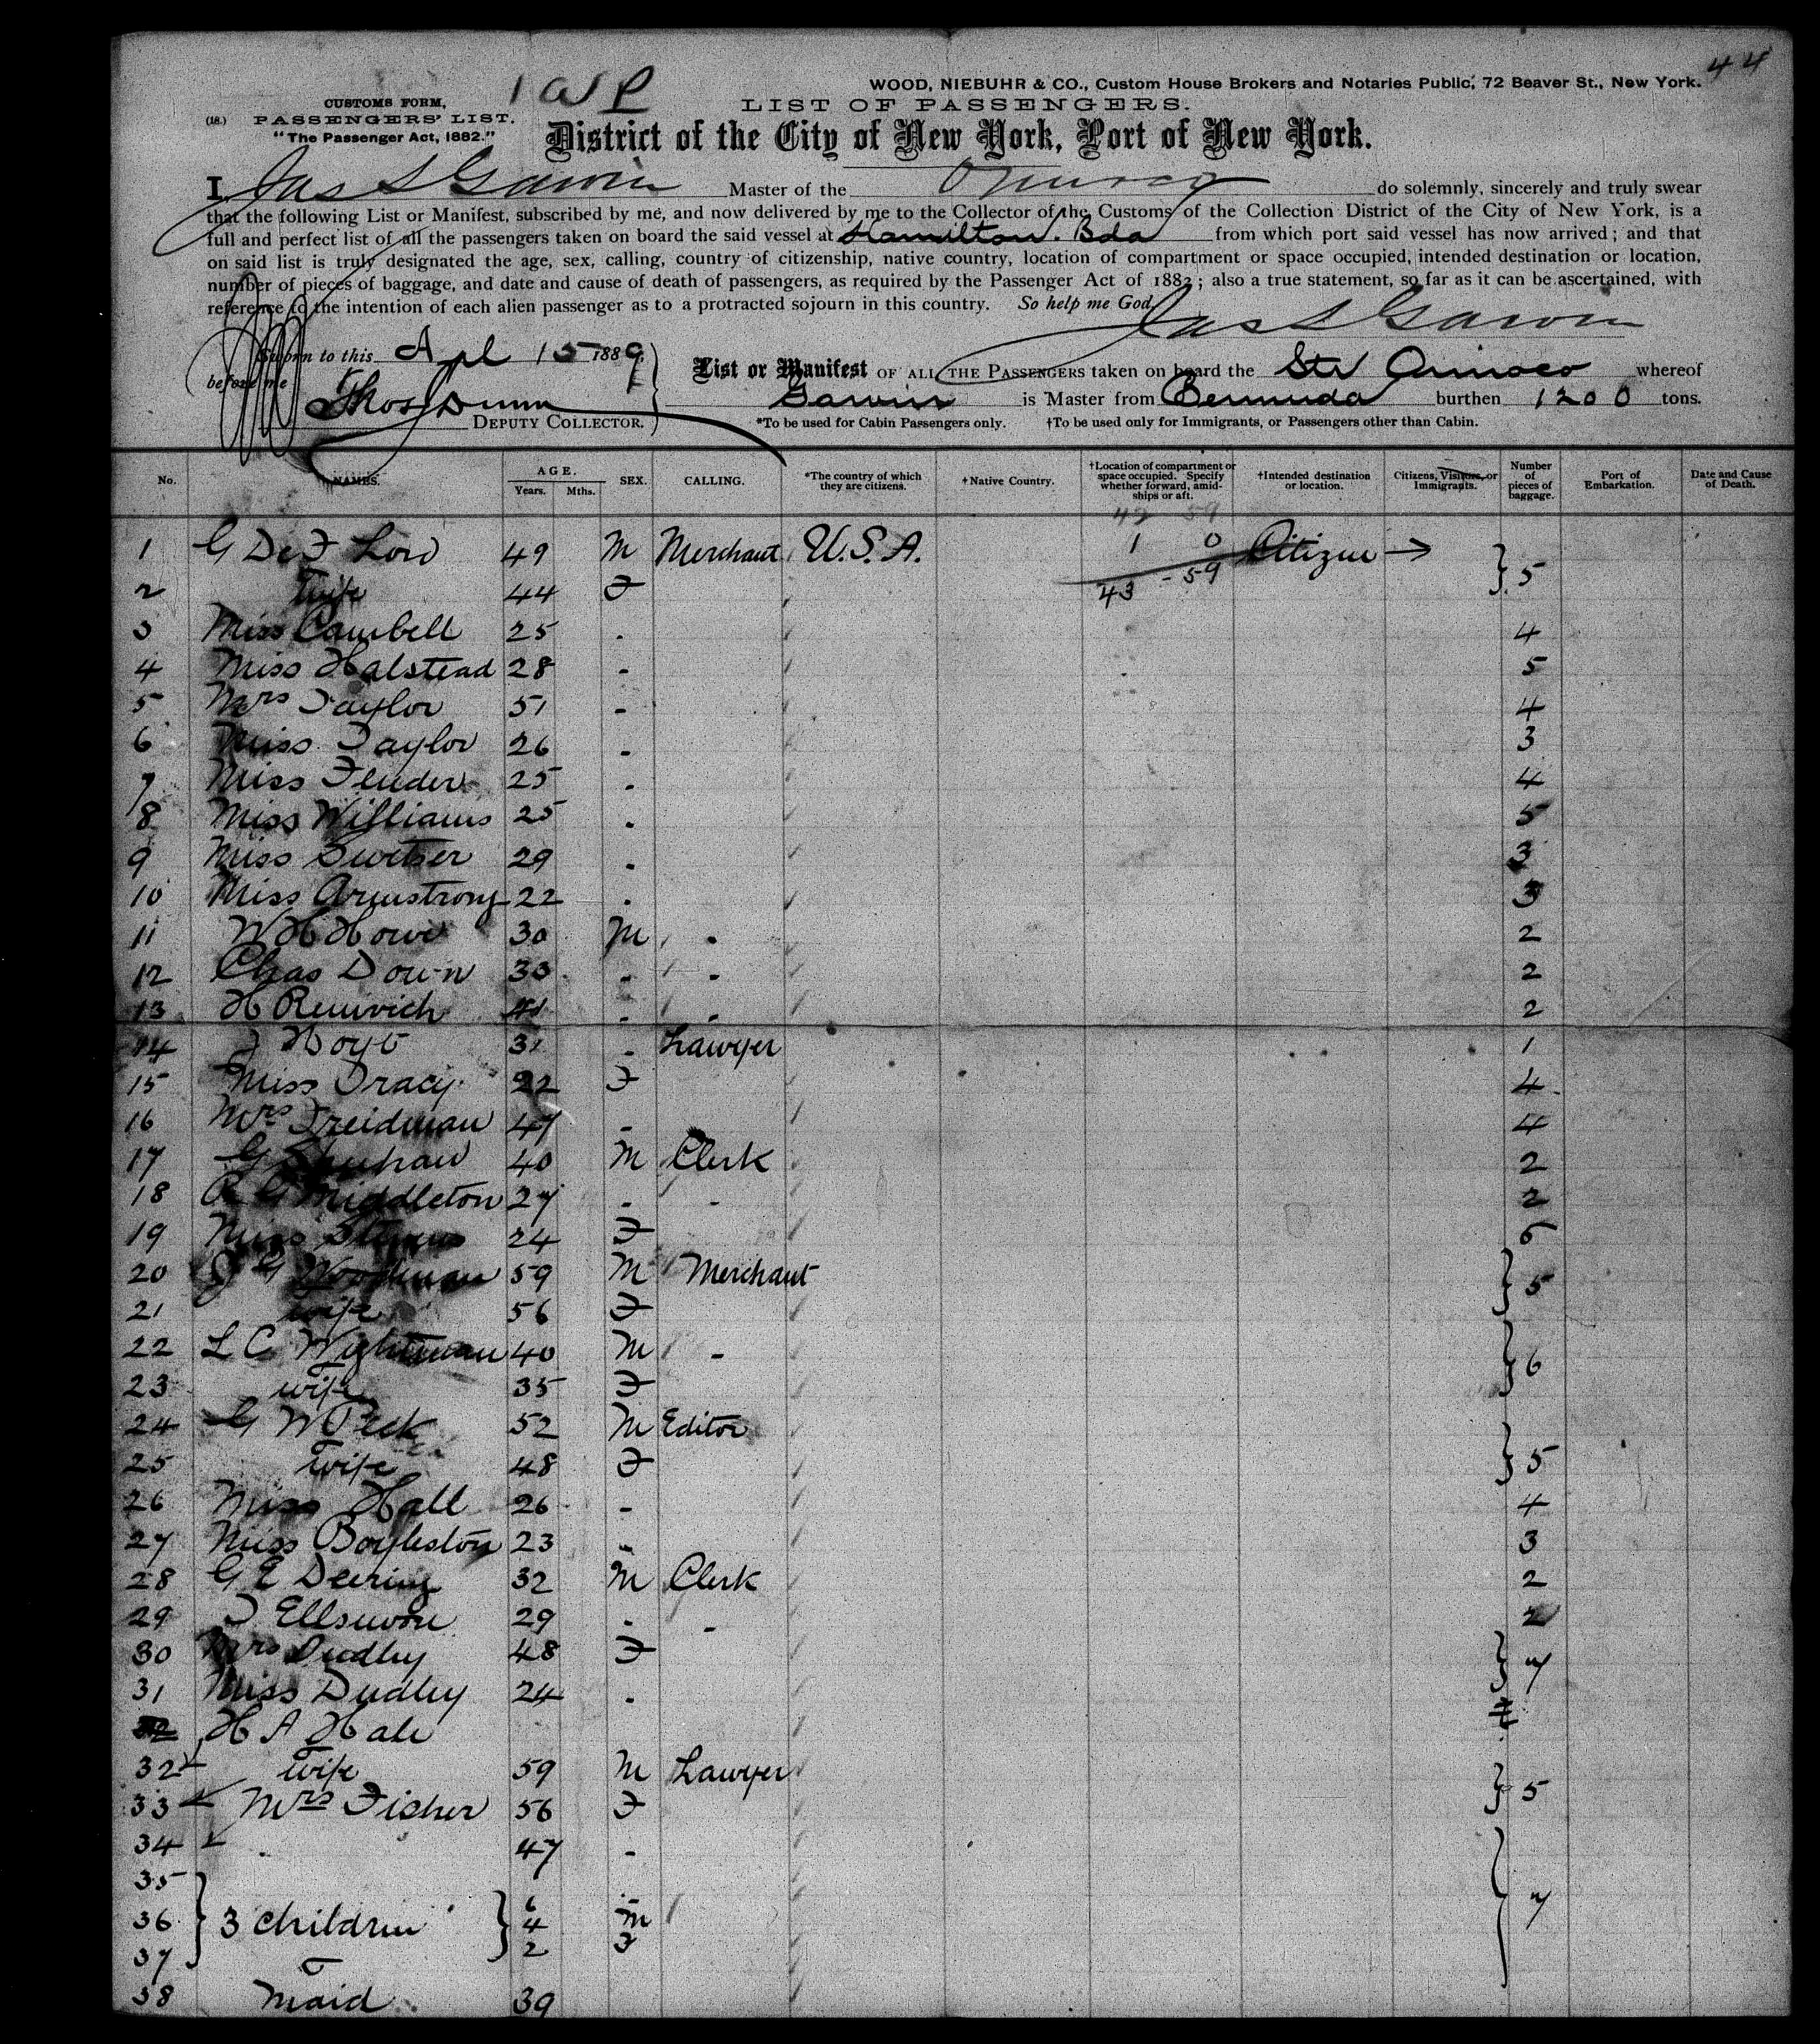 44
WOOD, NIEBUHR & CO., Custom House Brokers and Notaries Public, 72 Beaver St., New York.
CUSTOMS FORM,
(18.) PASSENGERS' LIST.
"The Passenger Act, 1882."
LIST OF PASSENGERS.
District of the City of New York, Port of New York.
I, Jas S Garvin Master of the Orinoco do solemnly, sincerely and truly swear
that the following List or Manifest, subscribed by me, and now delivered by me to the Collector of the Customs of the Collection District of the City of New York, is a
full and perfect list of all the passengers taken on board the said vessel at Hamilton. Bda from which port said vessel has now arrived; and that
on said list is truly designated the age, sex, calling, country of citizenship, native country, location of compartment or space occupied, intended destination or location,
number of pieces of baggage, and date and cause of death of passengers, as required by the Passenger Act of 1882; also a true statement, so far as it can be ascertained, with
reference to the intention of each alien passenger as to a protracted sojourn in this country. So help me God.
Jas S Garvin
Sworn to this Apl 15 1889.
before me
Thos Dunn
DEPUTY COLLECTOR.
List or Manifest OF ALL THE PASSENGERS taken on board the Str Orinoco whereof
Garvin is Master from Bermuda burthen 1200 tons.
*To be used for Cabin Passengers only. †To be used only for Immigrants, or Passengers other than Cabin.
No. NAMES. AGE. Years. Mths. SEX. CALLING. *The country of which they are citizens. †Native Country. †Location of compartment or space occupied. Specify whether forward, amidships or aft. †Intended destination or location. Citizens, Visitors, or Immigrants. Number of pieces of baggage. Port of Embarkation. Date and Cause of Death.
42 59
1 0
43 - 59
1 G De F Low 49 M Merchant U.S.A. Citizen } 5
2 Wife 44 F
3 Miss Cambell 25 . 4
4 Miss Halstead 28 - 5
5 Mrs Taylor 51 - 4
6 Miss Taylor 26 - 3
7 Miss 25 . 4
8 Miss Williams 25 . 5
9 Miss Switser 29 . 3
10 Miss Armstrong 22 . 3
11 W H Howe 30 M . 2
12 Chas Down 33 - . 2
13 H Renwich 41 . . 2
14 Hoyt 31 - Lawyer 1
15 Miss Tracy 22 F 4
16 Mrs Freidman 47 - 4
17 G 40 M Clerk 2
18 R G Middleton 27 . - 2
19 Miss Stevens 24 F 5
20 J G Woodman 59 M Merchant } 5
21 wife 56 F
22 L C Wightman 40 M - } 6
23 wife 35 F
24 G W Peck 52 M Editor } 5
25 wife 48 F
26 Miss Hall 26 - 4
27 Miss Boyleston 23 " 3
28 G E Deering 32 M Clerk 2
29 29 . - 2
30 Mrs Dudley 48 F } 7
31 Miss Dudley 24 .
32 H A Hale
32 wife 59 M Lawyer } 5
33 Mrs Fisher 56 F
34 47 -
35 6
36 } 3 children } 4 M 7
37 2 F
38 Maid 39